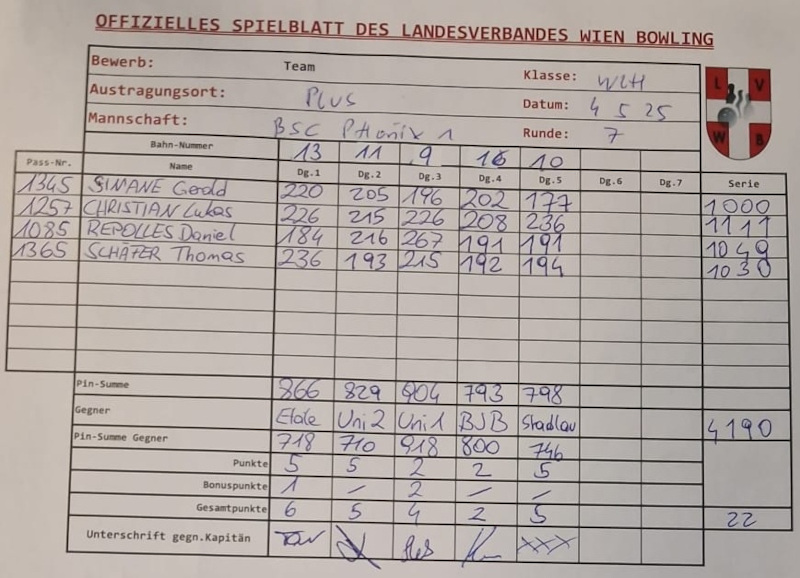 OFFIZIELLES SPIELBLATT DES LANDESVERBANDES WIEN BOWLING
Bewerb: Team Klasse: WLH
Austragungsort: PLUS Datum: 4 5 25
Mannschaft: BSC PHönix 1 Runde: 7
L V W B
Bahn-Nummer 13 11 9 16 10
Pass-Nr. Name Dg.1 Dg.2 Dg.3 Dg.4 Dg.5 Dg.6 Dg.7 Serie
1345 SIMANE Gerald 220 205 196 202 177 1000
1257 CHRISTIAN Lukas 226 215 226 208 236 1111
1085 REPOLLES Daniel 184 216 267 191 191 1049
1365 SCHÄFER Thomas 236 193 215 192 194 1030
Pin-Summe 866 829 904 793 798
Gegner Uni 2 Uni 1 BJB Stadlau 4190
Pin-Summe Gegner 718 710 918 800 746
Punkte 5 5 2 2 5
Bonuspunkte 1 – 2 – –
Gesamtpunkte 6 5 4 2 5 22
Unterschrift gegn.Kapitän XXX